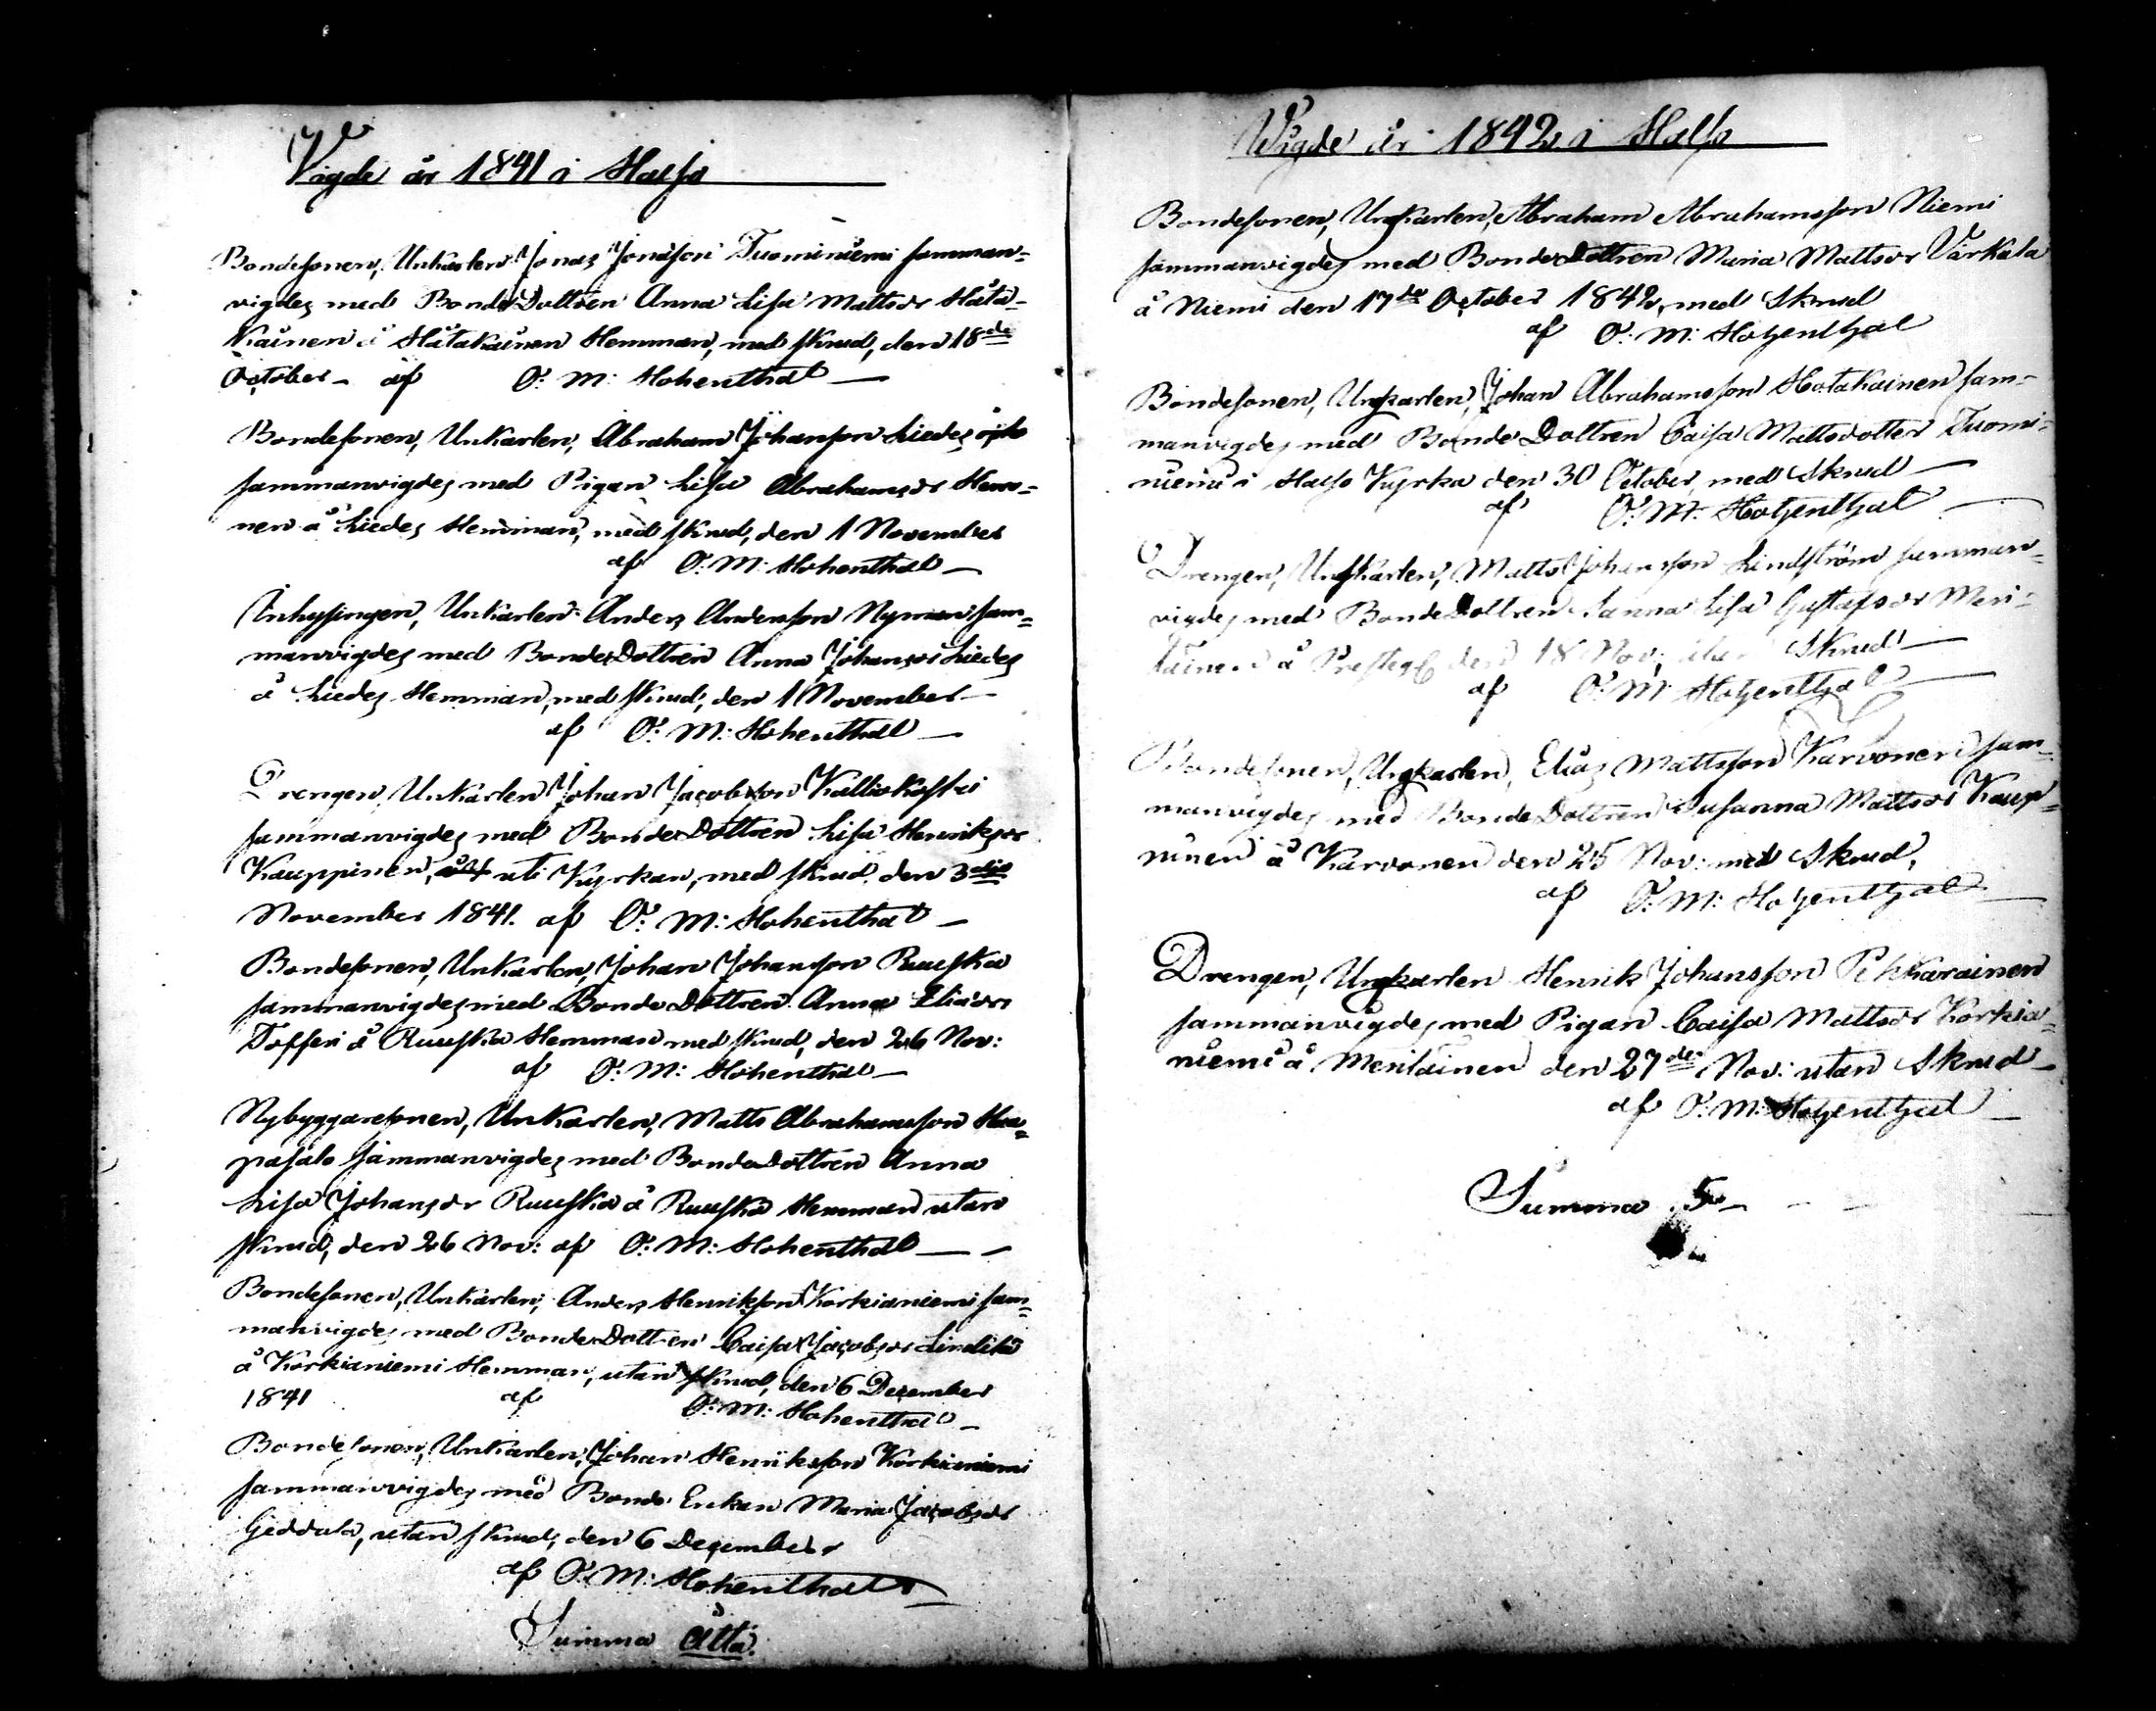 Vigde år 1841 i Halso
Bondesonen, Unkarlen Jonas Jonasson Tuominiemi samman-
vigdes med BondeDottren Anna Lisa Mattsdr Hata-
Kainen å Hatakainen Hemman, med skrud, den 18de
October af O: M: Hohenthal
Bondesonen, Unkarlen, Abraham Johansson Liedes
sammanvigdes med Pigan Lisa Abrahamsdr Hern-
nen å Liedes Hemman, med skrud, den 1 November
af O: M: Hohenthal
Inhysingen, Unkarlen Anders Andersson Nyman sam-
manvigdes med BondeDottren Anna Johansdr Liedes
å Liedes Hemman, med skrud, den 1 November
af O: M: Hohenthal
Drengen, Unkarlen Johan Jacobsson Kalliokoski
sammanvigdes med BondeDottren Lisa Henriksdr
Kauppinen, uti Kyrkan, med skrud, den 3dje
November 1841. af O: M: Hohenthal
Bondesonen, Unkarlen, Johan Johansson Ruuska
sammanvigdes med BondeDottren Anna Eliædr
Tofferi å Ruuska Hemman med skrud, den 26 Nov:
af O: M: Hohenthal
Nybyggaresonen, Unkarlen, Matts Abrahamsson Haa-
pasalo sammanvigdes med BondeDottren Anna
Lisa Johansdr Ruuska å Ruuska Hemman utan
skrud, den 26 Nov: af O: M: Hohenthal
Bondesonen, Unkarlen, Anders Henriksson Korkianiemi sam-
manvigdes med BondeDottren Caisa Jacobsdr Lindila
å Korkianiemi Hemman, utan skrud, den 6 December
1841 af O: M: Hohenthal
Bondesonen, Unkarlen, Johan Henriksson Korkianiemi
sammanvigdes med Bonde Enkan Maria Jacobsdr
Geddala, utan skrud, den 6 December
af O: M: Hohenthal
Summa Åtta.
Wigde år 1842 i Halso
Bondesonen, Ungkarlen, Abraham Abrahamsson Niemi
sammanvigdes med BondeDottren Maria Mattsdr Värkälä
å Niemi den 17de October 1842, med Skrud
af O: M: Hohenthal
Bondesonen, Ungkarlen, Johan Abrahamsson Hotakainen sam-
manvigdes med Bonde Dottren Caisa Mattsdotter Tuomi-
niemi i Halso Kyrka den 30 October, med Skrud
af O: M: Hohenthal
Drengen, Ungkarlen, Matts Johansson Lindström samman-
vigdes med BondeDottren Sanna Lisa Gustafsdr Meri-
läinen å den 18 Nov: utan Skrud
af O: M: Hohenthal
Bondesonen, Ungkarlen, Elias Mattsson Karvonen sam-
manvigdes med BondeDottren Susanna Mattsdr Kaup-
pinen å Karvonen den 25 Nov: med Skrud,
af O: M: Hohenthal
Drengen, Ungkarlen Henrik Johansson Pehkarainen
sammanvigdes med Pigan Caisa Mattsdr Korkia-
niemi å Meriläinen den 27de Nov: utan Skrud
af O: M: Hohenthal
Summa 5